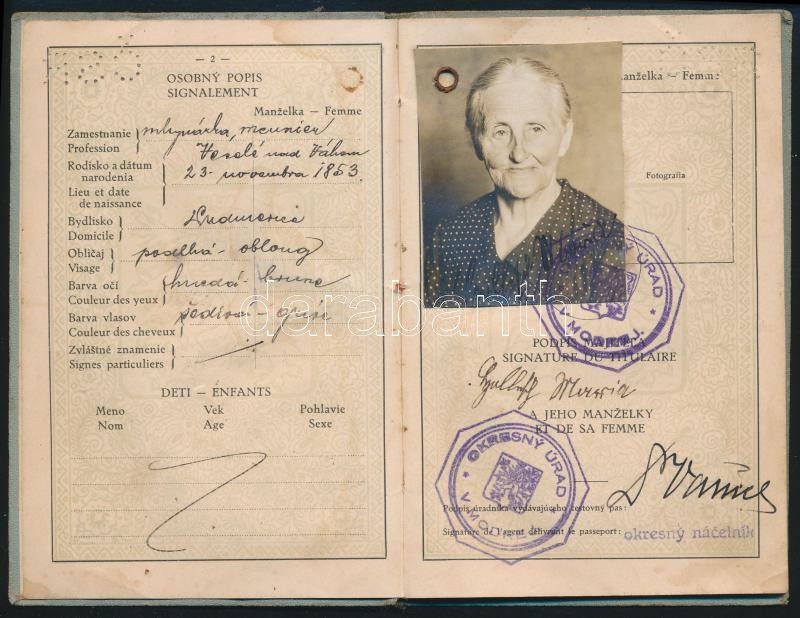 — 2 —
OSOBNÝ POPIS
SIGNALEMENT
Manželka — Femme
Zamestnanie
Profession
mlynárka, meunier
Rodisko a dátum
narodenia
Veselé nad Váhom
23. novembra 1853.
Lieu et date
de naissance
Bydlisko
Domicile
Obličaj
Visage
podelhá - oblong
Barva očí
Couleur des yeux
hnedá - brune
Barva vlasov
Couleur des cheveux
šedivá - grise
Zvláštné znamenie
Signes particuliers
DETI — ENFANTS
Meno
Vek
Pohlavie
Nom
Age
Sexe
Manželka — Femme
Fotografia
ÚRAD
PODPIS MAJITEĽA
SIGNATURE DU TITULAIRE
Maria
A JEHO MANŽELKY
ET DE SA FEMME
OKRESNÝ ÚRAD
V MODRE
Podpis úradníka vydávajúceho cestovný pas:
Signature de l'agent délivrant le passeport:
okresný náčelník
darabanth